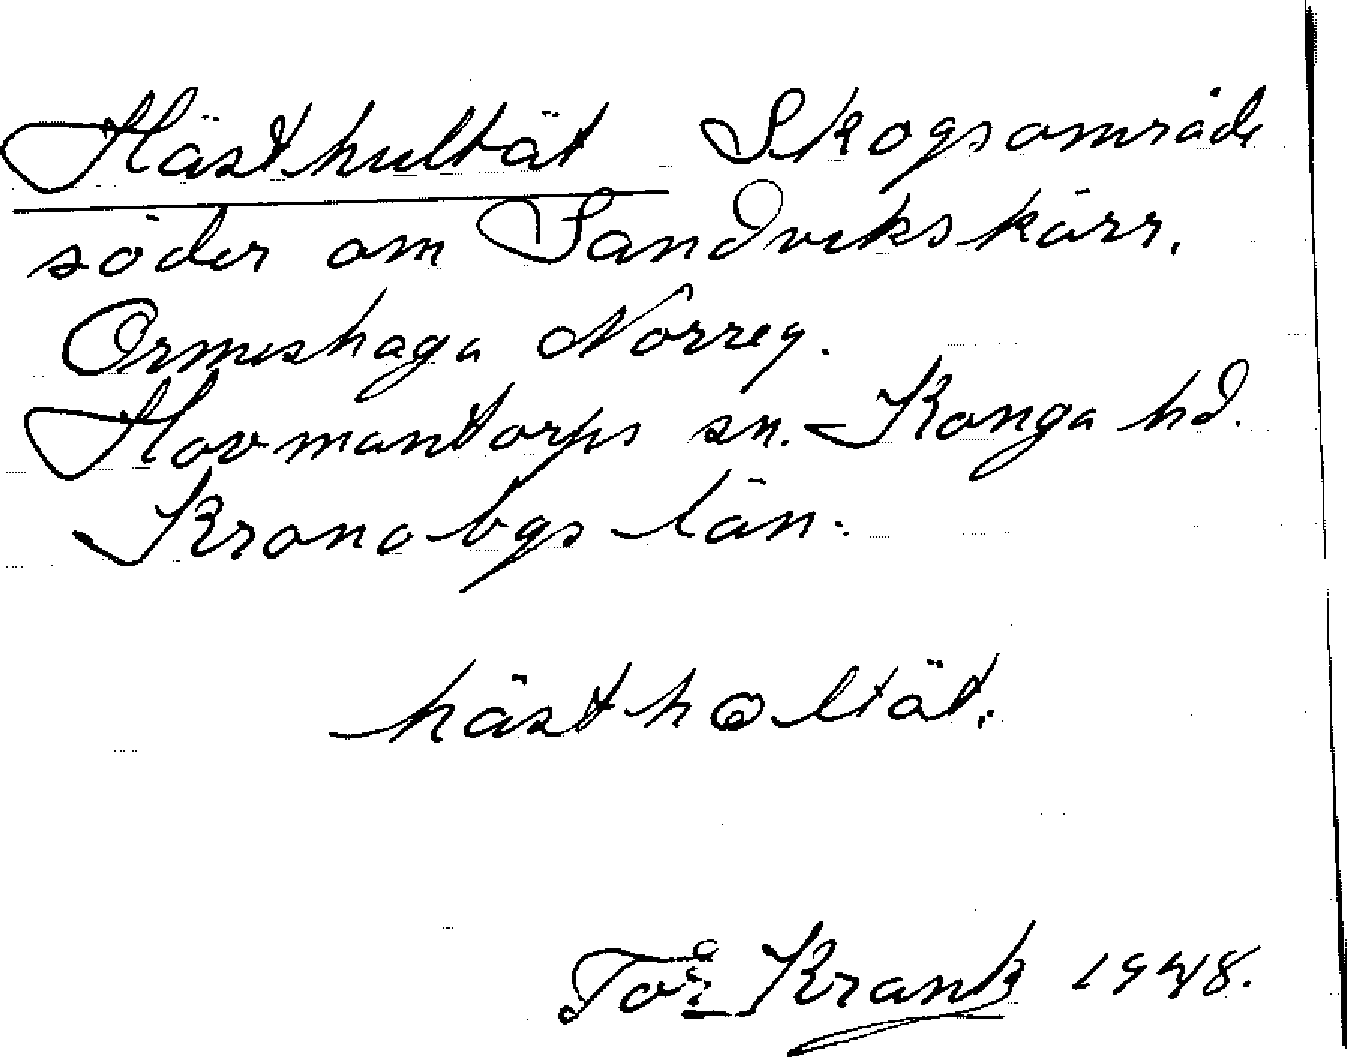 Hästhultät Skogsområde
söder om Sandvikskärr.
Ormeshaga Norreg.
Hovmantorps sn. Konga hd.
Kronobgs län.
hästholtät.
Tor Krank 1948.